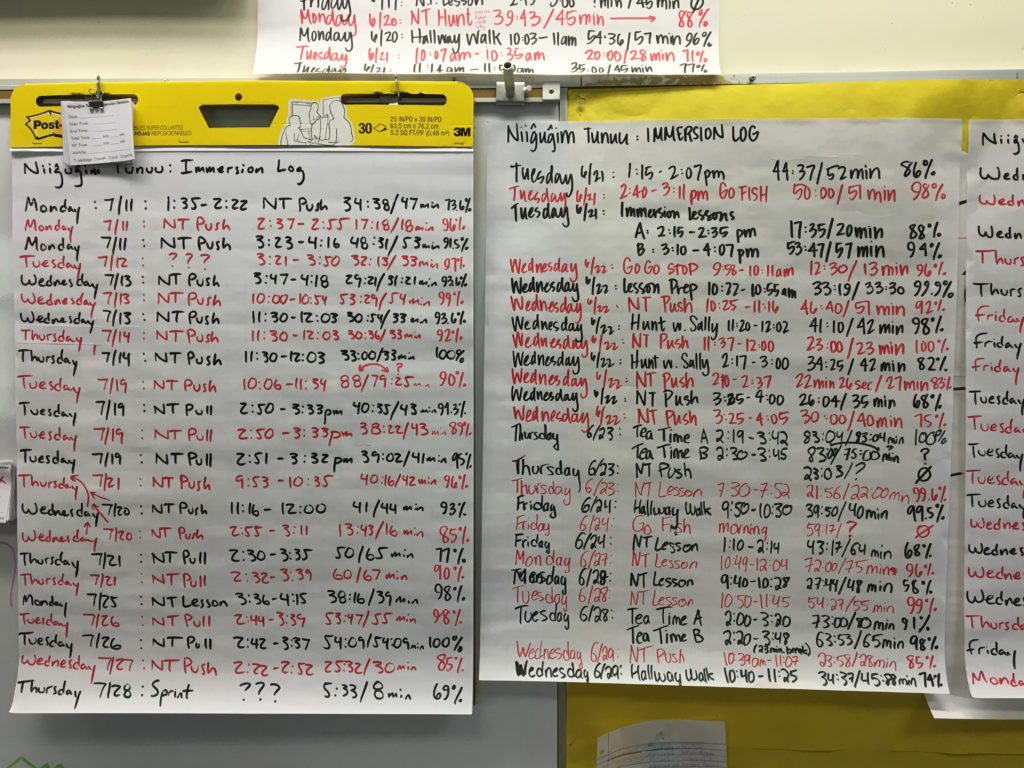 Monday 6/20: NT Hunt 39:43/45min → 88%
Monday 6/20: Hallway Walk 10:03-11am 54:36/57min 96%
Tuesday 6/21: 10:07am-10:35am 20:00/28min 71%
Tuesday 6/21: 35:00/45min 77%
Post-it
25 IN/PO x 30 IN/PO
63,5 cm x 76,2 cm
5.2 SQ FT/PI² (0,48 m²)
30
3M
Niiĝuĝim Tunuu: Immersion Log
Monday : 7/11 : 1:35-2:22 NT Push 34:38/47min 73.6%
Monday 7/11 : NT Push 2:37-2:55 17:18/18min 96%
Monday 7/11 : NT Push 3:23-4:16 48:31/53min 91.5%
Tuesday 7/12 : ? ? ? 3:21-3:50 32:13/33min 97%
Wednesday 7/13 : NT Push 3:47-4:18 29:21/31:21min 93.6%
Wednesday 7/13 : NT Push 10:00-10:54 53:29/54min 99%
Wednesday 7/13 : NT Push 11:30-12:03 30:54/33min 93.6%
Thursday 7/14 : NT Push 11:30-12:03 30:36/33min 92%
Thursday 7/14 : NT Push 11:30-12:03 33:00/33min 100%
?
Tuesday 7/19 : NT Push 10:06-11:34 88/79:25min 90%
Tuesday 7/19 : NT Pull 2:50-3:33pm 40:35/43min 94.3%
Tuesday 7/19 : NT Pull 2:50-3:33pm 38:22/43min 89%
Tuesday 7/19 : NT Pull 2:51-3:32pm 39:02/41min 95%
Thursday 7/21 : NT Push 9:53-10:35 40:16/42min 96%
Wednesday 7/20 : NT Push 11:16-12:00 41/44min 93%
Wednesday 7/20 : NT Push 2:55-3:11 13:43/16min 85%
Thursday 7/21 : NT Pull 2:30-3:35 50/65min 77%
Thursday 7/21 : NT Pull 2:32-3:39 60/67min 90%
Monday 7/25 : NT Lesson 3:36-4:15 38:16/39min 98%
Tuesday 7/26 : NT Pull 2:44-3:39 53:47/55min 98%
Tuesday 7/26 : NT Pull 2:42-3:37 54:09/54:09min 100%
Wednesday 7/27 : NT Push 2:22-2:52 25:32/30min 85%
Thursday 7/28 : Sprint ??? 5:33/8min 69%
Niiĝuĝim Tunuu: IMMERSION LOG
Tuesday 6/21: 1:15-2:07pm 44:37/52min 86%
Tuesday 6/21: 2:40-3:11pm GO FISH 50:00/51min 98%
Tuesday 6/21: Immersion lessons
A: 2:15-2:35 pm 17:35/20min 88%
B: 3:10-4:07pm 53:47/57min 94%
Wednesday 6/22: GO GO STOP 9:58-10:11am 12:30/13min 96%
Wednesday 6/22: Lesson Prep 10:22-10:55am 33:19/33:30 99.9%
Wednesday 6/22: NT Push 10:25-11:16 46:40/51min 92%
Wednesday 6/22: Hunt w. Sally 11:20-12:02 41:10/42min 98%
Wednesday 6/22: NT Push 11:37-12:00 23:00/23min 100%
Wednesday 6/22: Hunt w. Sally 2:17-3:00 34:25/42min 82%
Wednesday 6/22: NT Push 2:10-2:37 22min 26sec/27min 83%
Wednesday 6/22: NT Push 3:25-4:00 26:04/35min 68%
Wednesday 6/22: NT Push 3:25-4:05 30:00/40min 75%
Thursday 6/23: Tea Time A 2:19-3:42 83:04/83:04min 100%
Tea Time B 2:30-3:45 ?
Thursday 6/23: NT Push 23:03/? Ø
Thursday 6/23: NT Lesson 7:30-7:52 21:56/22:00min 99.6%
Friday 6/24: Hallway Walk 9:50-10:30 39:50/40min 99.5%
Friday 6/24: Go Fish morning 59:17/? Ø
Friday 6/24: NT Lesson 1:10-2:14 43:17/64min 68%
Monday 6/27: NT Lesson 10:49-12:04 72:00/75min 96%
6/28: NT Lesson 9:40-10:28 27:44/48min 58%
Tuesday 6/28: NT Lesson 10:50-11:45 54:27/55min 99%
Tuesday 6/28: Tea Time A 2:00-3:20 73:00/80min 91%
Tea Time B 2:20-3:48 63:53/65min 98%
(23min. break)
Wednesday 6/29: NT Push 10:39am-11:07 23:58/28min 85%
Wednesday 6/29: Hallway Walk 10:40-11:25 34:37/45:88min 74%
Niiĝ
Wedn
Wedn
Thurs
Thurs
Friday
Friday
Friday
Tuesday
Tuesda
Tuesday
Tuesda
Tuesday
Wedne
Wednes
Wednes
Wednes
Thursd
Friday
Monda